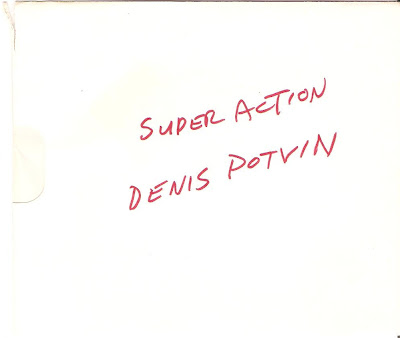 SUPER ACTION
DENIS POTVIN